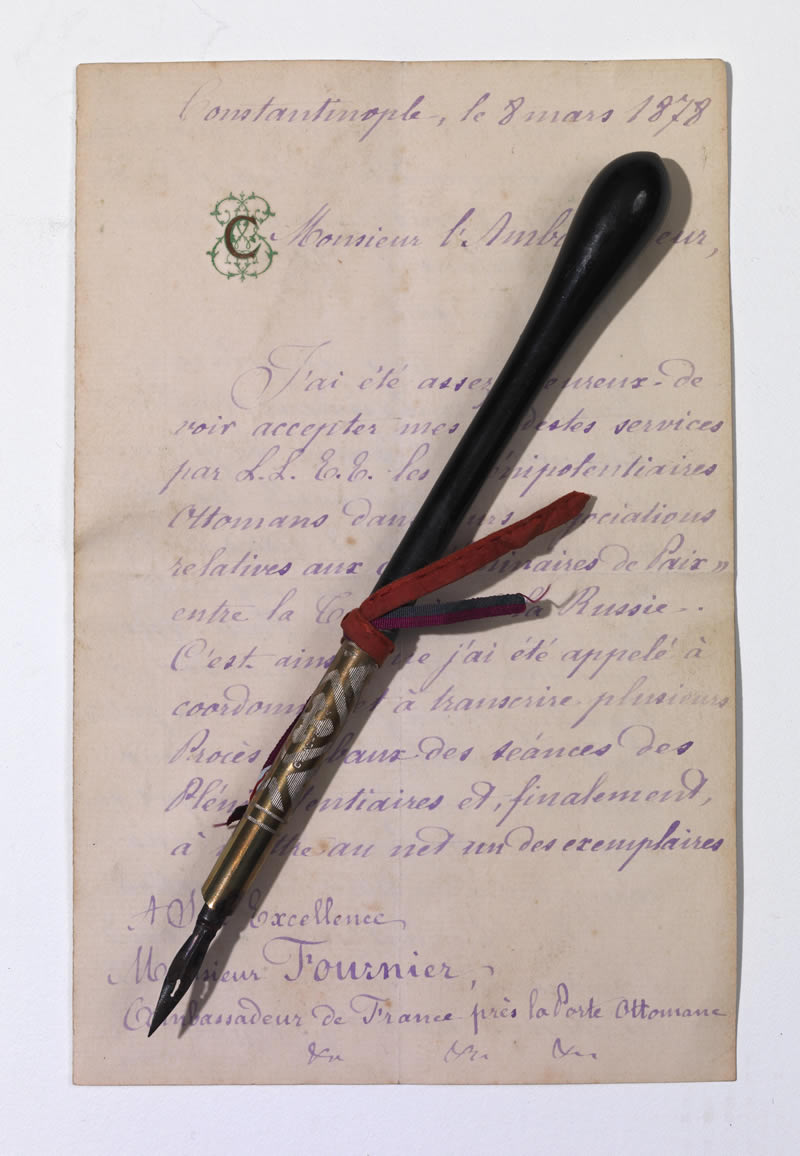 Constantinople, le 8 mars 1878
C
Monsieur l'Amb eur,
J'ai été assez eureux de
voir accepter mes destes services
par L.L. E.E. les nipotentiaires
Ottomans dans urs ociations
relatives aux inaires de Paix"
entre la la Russie.
C'est ains e j'ai été appelé à
coordonn et à transcrire plusieurs
Procès baux des séances des
Plén entiaires et, finalement,
à ttre au net un des exemplaires
A S Excellence
M sieur Fournier,
Ambassadeur de France près la Porte Ottomane